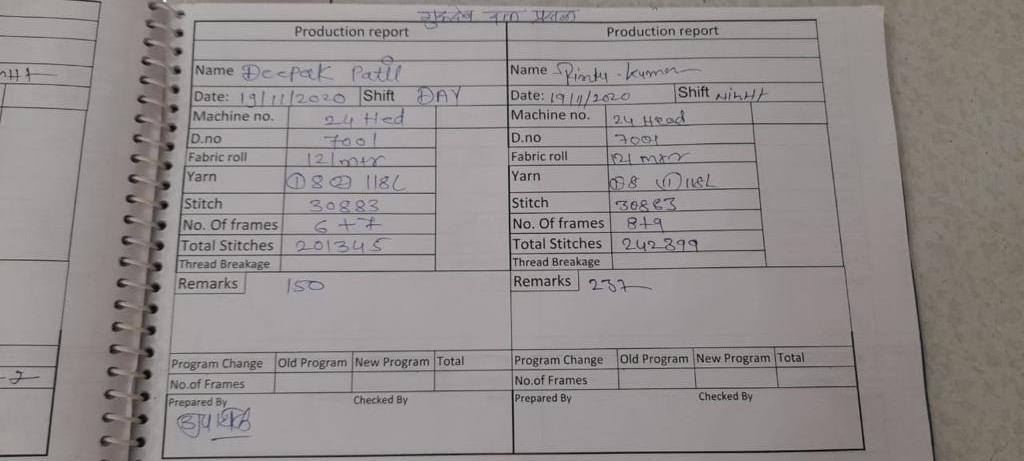 Production report
Name Deepak Patil
Date: 19/11/2020 Shift DAY
Machine no. 24 Hed
D.no 7001
Fabric roll 121 mtr
Yarn ① 8 ② 118L
Stitch 30883
No. Of frames 6+7
Total Stitches 201345
Thread Breakage
Remarks 150
Program Change Old Program New Program Total
No.of Frames
Prepared By Checked By
Production report
Name Pintu-kumar
Date: 19/11/2020 Shift NIGHT
Machine no. 24 Head
D.no 7001
Fabric roll 121 mtr
Yarn ① 8 ⑪ 118L
Stitch 30883
No. Of frames 8+9
Total Stitches 242899
Thread Breakage
Remarks 237
Program Change Old Program New Program Total
No.of Frames
Prepared By Checked By